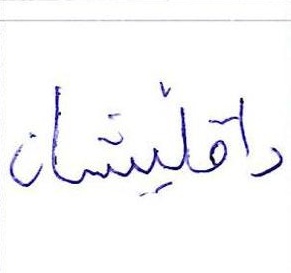 داقڵیشان